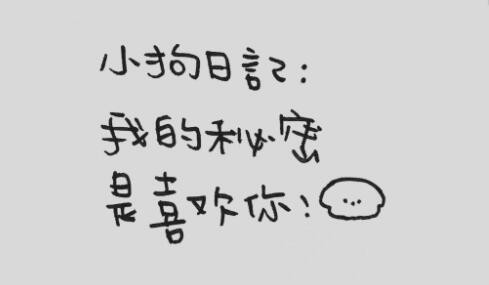 小狗日記：
我的秘密
是喜欢你！